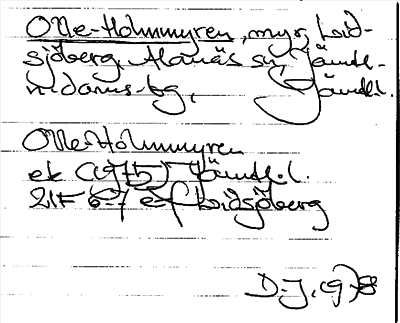 Olle-Holmmyren, myr, Lid-
sjöberg, Alanäs sn, Jämtl-
n. doms-bg, Jämtl.
Olle-Holmmyren
ek (1975) Jämtl. l.
21F 6-7 e-f Lidsjöberg
D.J. 1978